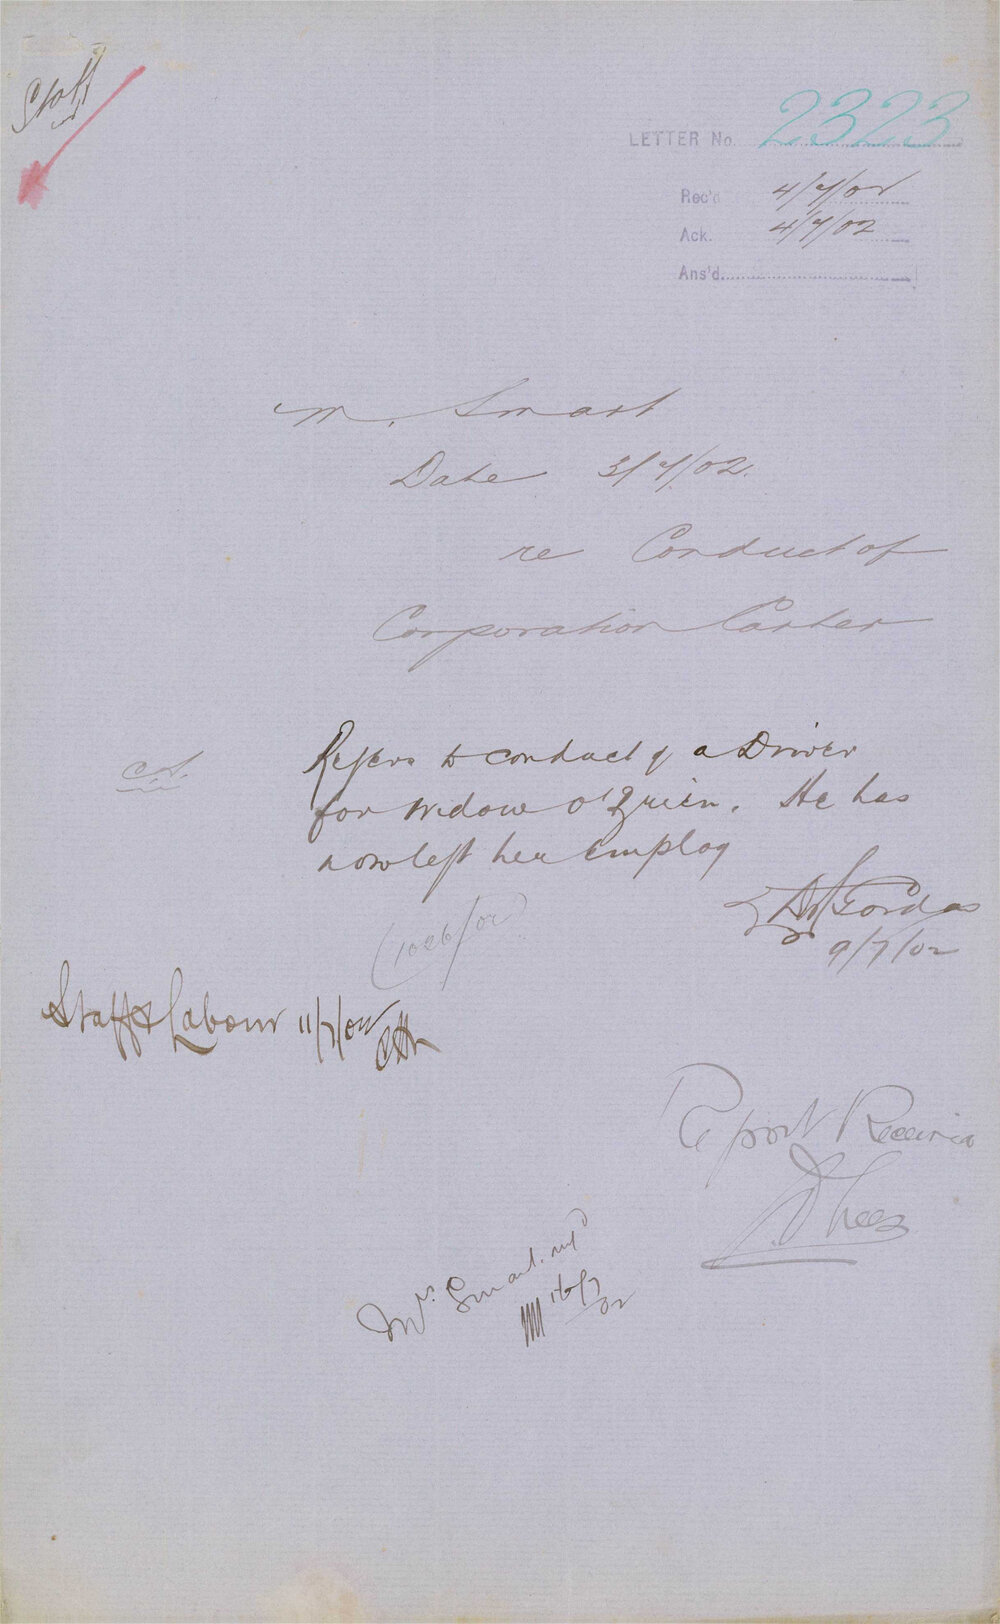 Staff
LETTER No. 2323
Rec'd 4/7/02
Ack. 4/7/02
Ans'd
M. Smart
Date 3/7/02.
re Conduct of
Corporation Carter
Refers to conduct of a Driver
for Widow O'Brien. He has
now left her employ
Gordon
9/7/02
(1026/02)
Staff & Labour 11/7/02
Report Received
Mrs. Smart.
16/7/02